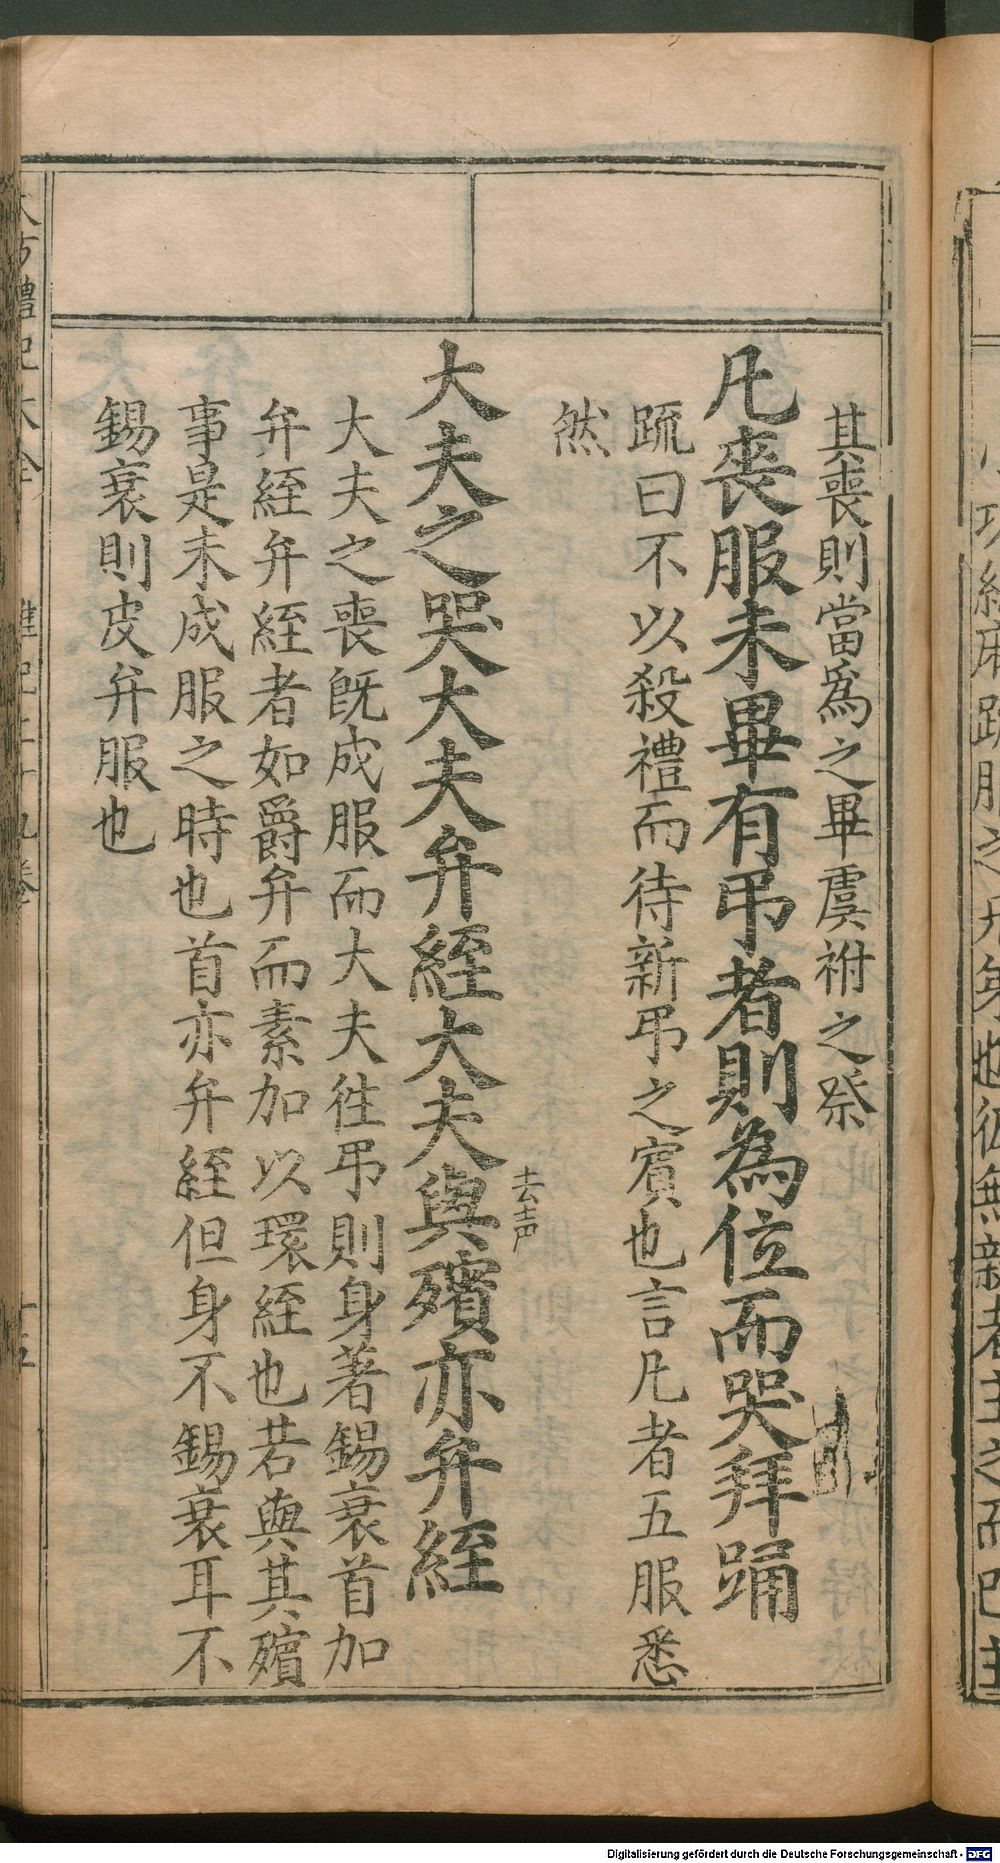 其喪則當爲之畢虞祔之祭
凡喪服未畢有弔者則為位而哭拜踊
疏曰不以殺禮而待新弔之賓也言凡者五服悉
然
大夫之哭大夫弁絰大夫與殯亦弁絰
去声
大夫之喪旣成服而大夫徃弔則身著錫衰首加
弁絰弁絰者如爵弁而素加以環絰也若與其殯
事是未成服之時也首亦弁絰但身不錫衰耳不
錫衰則皮弁服也
Digitalisierung gefördert durch die Deutsche Forschungsgemeinschaft - DFG